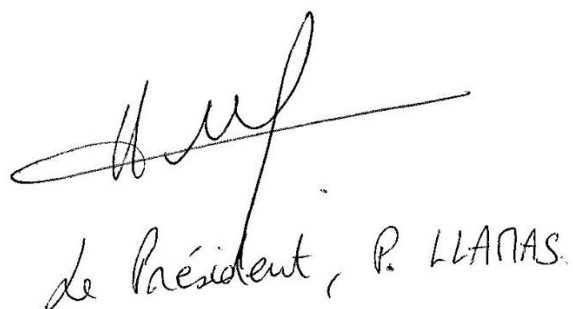 Le Président, P. LLAMAS.